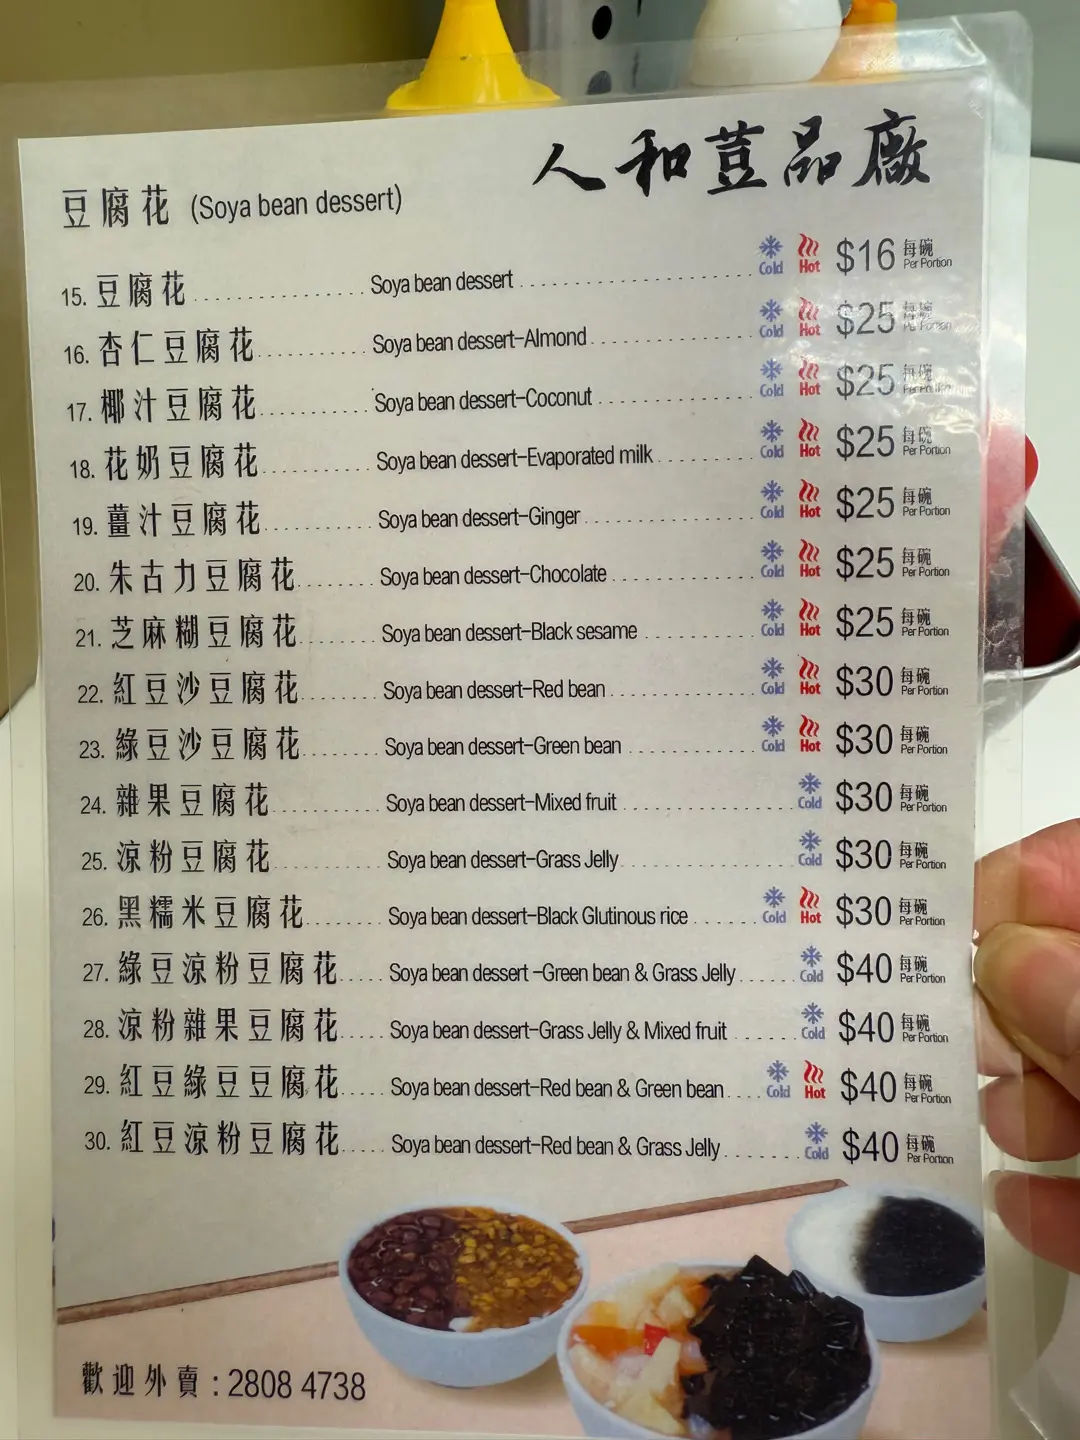 人和荳品廠
豆腐花 (Soya bean dessert)
15. 豆腐花 Soya bean dessert Cold Hot $16 每碗 Per Portion
16. 杏仁豆腐花 Soya bean dessert-Almond Cold Hot $25 每碗 Per Portion
17. 椰汁豆腐花 Soya bean dessert-Coconut Cold Hot $25 每碗 Per Portion
18. 花奶豆腐花 Soya bean dessert-Evaporated milk Cold Hot $25 每碗 Per Portion
19. 薑汁豆腐花 Soya bean dessert-Ginger Cold Hot $25 每碗 Per Portion
20. 朱古力豆腐花 Soya bean dessert-Chocolate Cold Hot $25 每碗 Per Portion
21. 芝麻糊豆腐花 Soya bean dessert-Black sesame Cold Hot $25 每碗 Per Portion
22. 紅豆沙豆腐花 Soya bean dessert-Red bean Cold Hot $30 每碗 Per Portion
23. 綠豆沙豆腐花 Soya bean dessert-Green bean Cold Hot $30 每碗 Per Portion
24. 雜果豆腐花 Soya bean dessert-Mixed fruit Cold $30 每碗 Per Portion
25. 涼粉豆腐花 Soya bean dessert-Grass Jelly Cold $30 每碗 Per Portion
26. 黑糯米豆腐花 Soya bean dessert-Black Glutinous rice Cold Hot $30 每碗 Per Portion
27. 綠豆涼粉豆腐花 Soya bean dessert -Green bean & Grass Jelly Cold $40 每碗 Per Portion
28. 涼粉雜果豆腐花 Soya bean dessert-Grass Jelly & Mixed fruit Cold $40 每碗 Per Portion
29. 紅豆綠豆豆腐花 Soya bean dessert-Red bean & Green bean Cold Hot $40 每碗 Per Portion
30. 紅豆涼粉豆腐花 Soya bean dessert-Red bean & Grass Jelly Cold $40 每碗 Per Portion
歡迎外賣 : 2808 4738